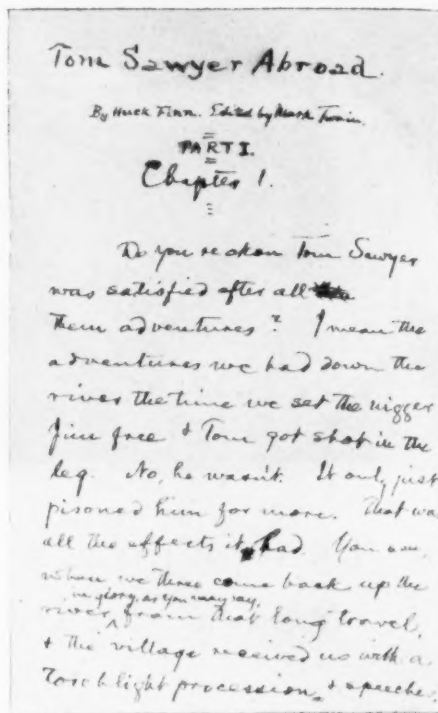 Tom Sawyer Abroad.
By Huck Finn. Edited by Mark Twain.
PART I.
Chapter 1.
Do you reckon Tom Sawyer
was satisfied after all
them adventures? I mean the
adventures we had down the
river the time we set the nigger
Jim free & Tom got shot in the
leg. No, he wasn't. It only just
pisoned him for more. That was
all the effects it had. You see,
when we three come back up the
in glory, as you may say,
river from that long travel,
& the village received us with a
torchlight procession & speeches,